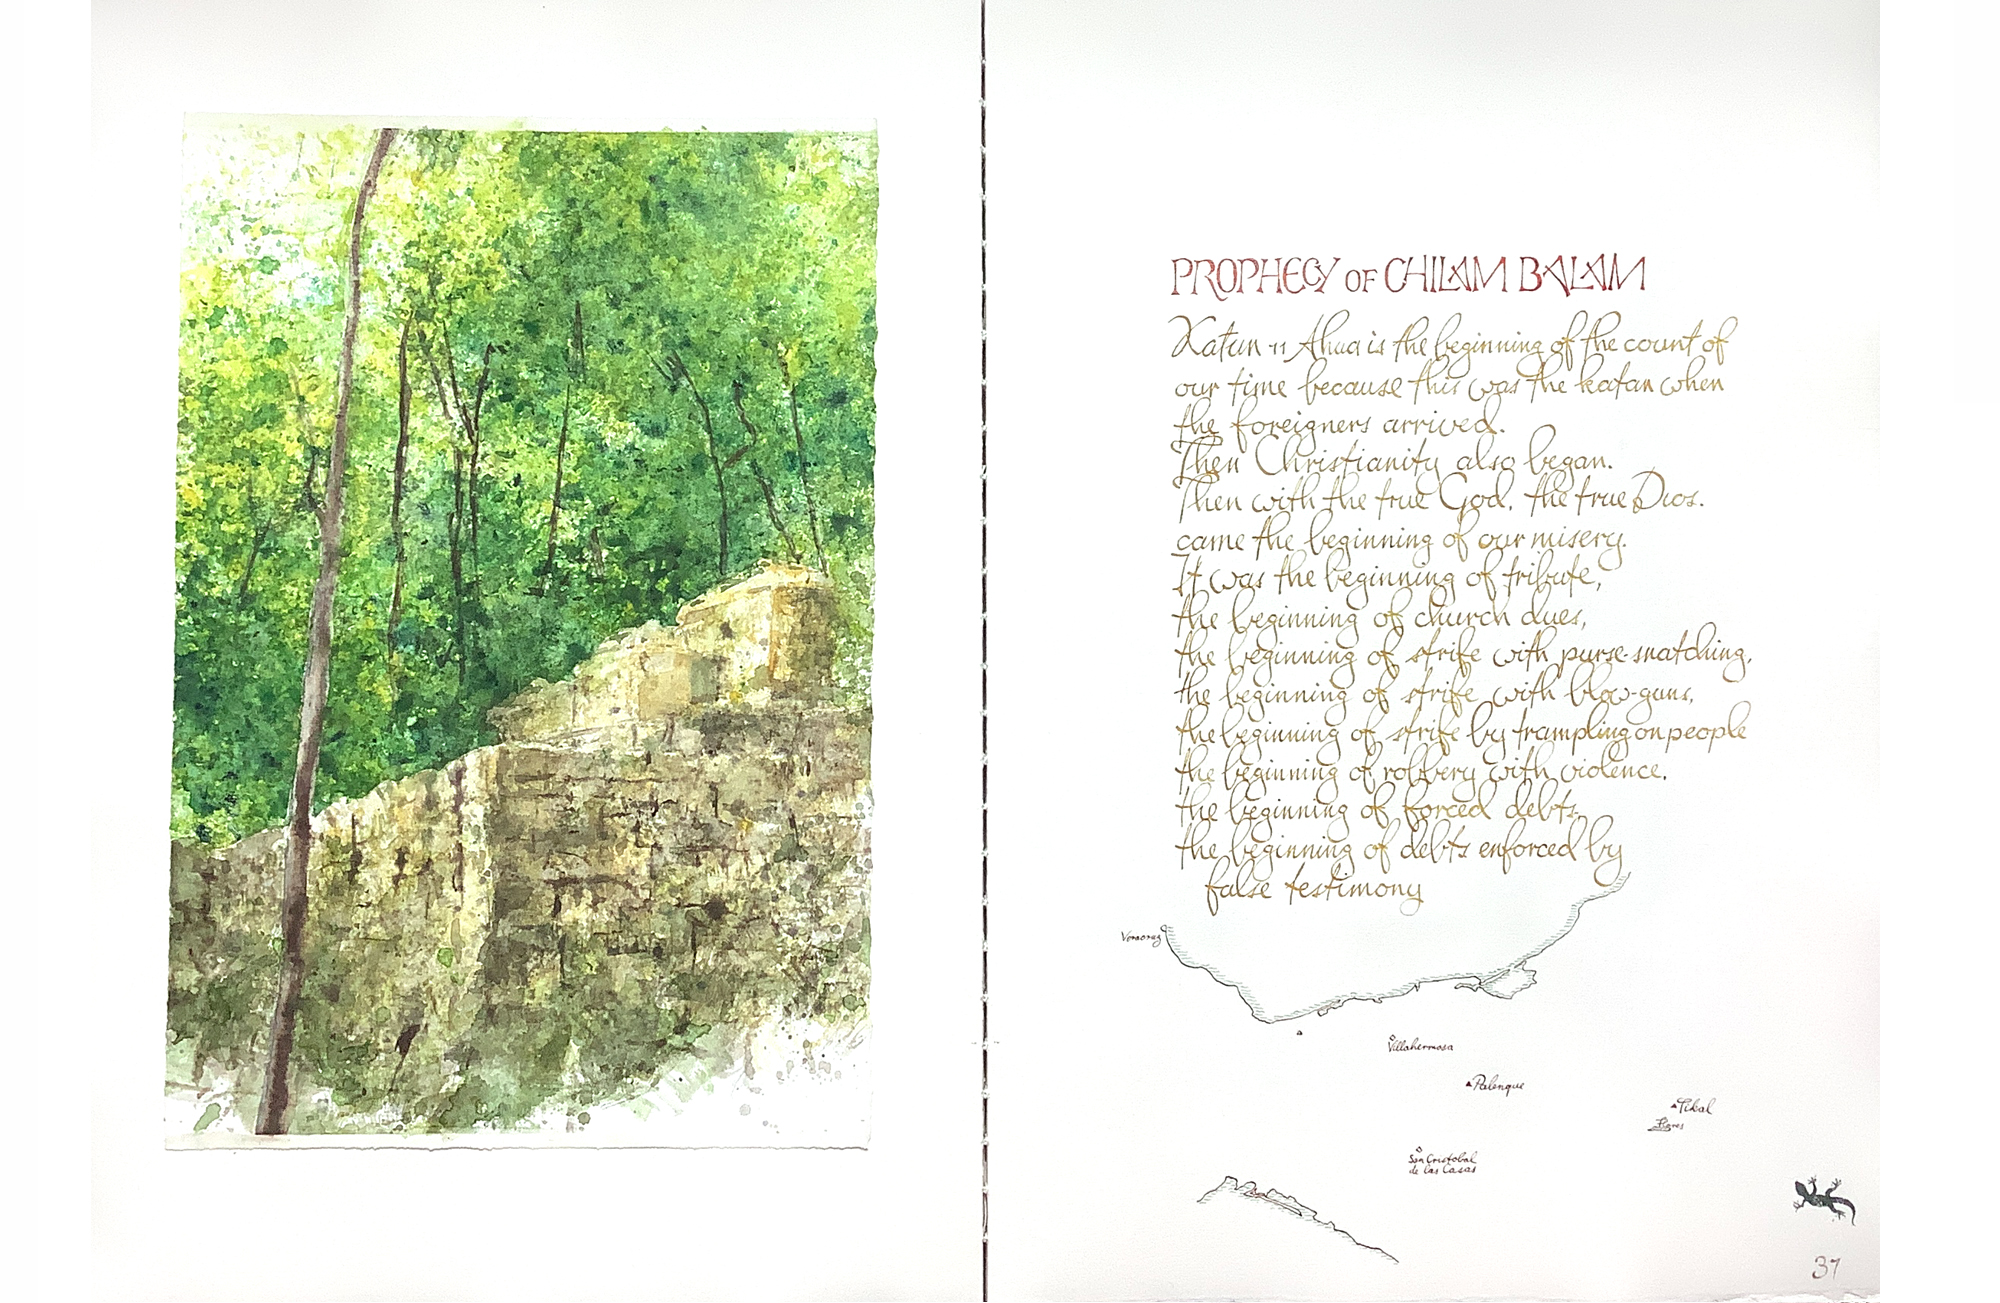 PROPHECY OF CHILAM BALAM
Katun 11 Ahua is the beginning of the count of
our time because this was the katan when
the foreigners arrived.
Then Christianity also began.
Then with the true God, the true Dios.
came the beginning of our misery.
It was the beginning of tribute,
the beginning of church dues,
the beginning of strife with purse-snatching,
the beginning of strife with blow-guns,
the beginning of strife by trampling on people
the beginning of robbery with violence,
the beginning of forced debts,
the beginning of debts enforced by
false testimony
Veracruz
Villahermosa
Palenque
Tikal
Flores
San Cristobal
de las Casas
37